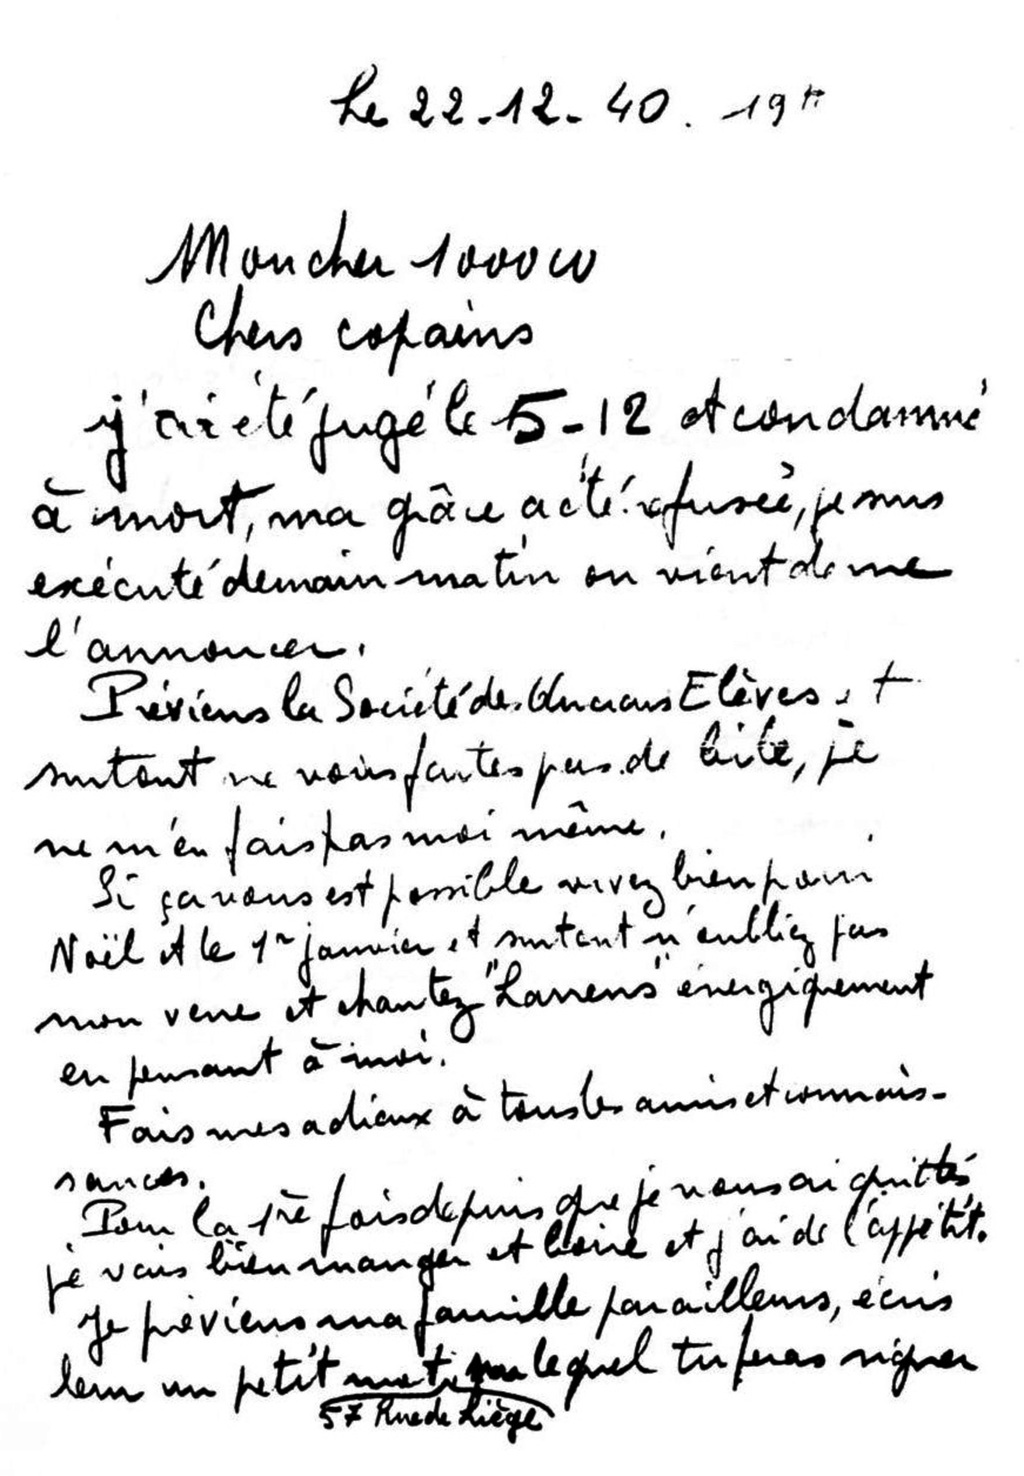 Le 22-12-40. 19h
Mon cher
Chers copains
j'ai été jugé le 5-12 et condamné
à mort, ma grâce a été refusée, je suis
exécuté demain matin on vient de me
l'annoncer.
Préviens la Société des Anciens Elèves et
surtout ne vous faites pas de bile, je
ne m'en fais pas moi même.
Si ça vous est possible vivez bien pour
Noël et le 1er janvier et surtout n'oubliez pas
mon verre et chantez "Larrens" énergiquement
en pensant à moi.
Fais mes adieux à tous les amis et connais-
sances.
Pour la 1ère fois depuis que je vous ai quittés
je vais bien manger et boire et j'ai de l'appétit.
Je préviens ma famille par ailleurs, écris
leur un petit mot, sur lequel tu feras signer
57 Rue de Liège